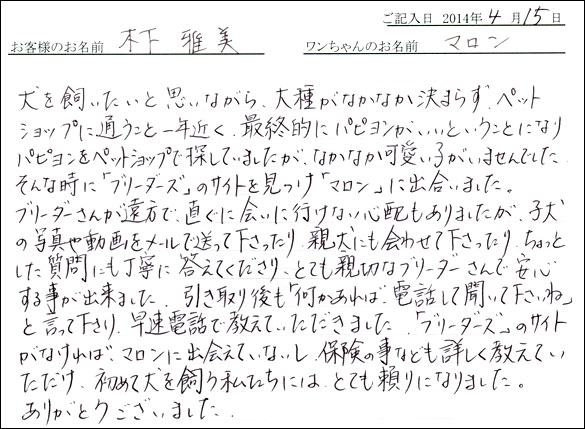 ご記入日 2014年 4月 15日
お客様のお名前 木下 雅美 ワンちゃんのお名前 マロン
犬を飼いたいと思いながら、犬種がなかなか決まらず、ペット
ショップに通うこと一年近く、最終的にパピヨンがいいということになり
パピヨンをペットショップで探していましたが、なかなか可愛い子がいませんでした。
そんな時に「ブリーダーズ」のサイトを見つけ「マロン」に出合いました。
ブリーダーさんが遠方で、直ぐに会いに行けない心配もありましたが、子犬
の写真や動画をメールで送って下さったり、親犬にも会わせて下さったり、ちょっと
した質問にも丁寧に答えてくださり、とても親切なブリーダーさんで安心
する事が出来ました。引き取り後も「何かあれば、電話して聞いて下さいね」
と言って下さり、早速電話で教えていただきました。「ブリーダーズ」のサイト
がなければマロンに出会えていないし、保険の事なども詳しく教えてい
ただけ、初めて犬を飼う私たちには、とても頼りになりました。
ありがとうございました。